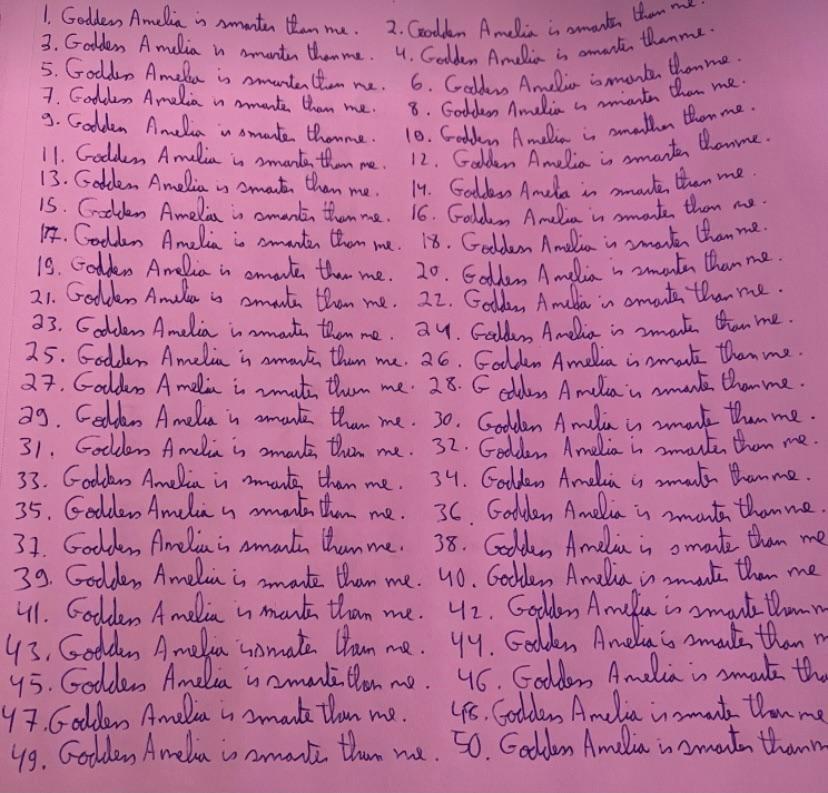 1. Goddess Amelia is smarter than me. 2. Goddess Amelia is smarter than me.
3. Goddess Amelia is smarter than me. 4. Goddess Amelia is smarter than me.
5. Goddess Amelia is smarter than me. 6. Goddess Amelia is smarter than me.
7. Goddess Amelia is smarter than me. 8. Goddess Amelia is smarter than me.
9. Goddess Amelia is smarter than me. 10. Goddess Amelia is smarther than me.
11. Goddess Amelia is smarter than me. 12. Goddess Amelia is smarter than me.
13. Goddess Amelia is smarter than me. 14. Goddess Amelia is smarter than me.
15. Goddess Amelia is smarter than me. 16. Goddess Amelia is smarter than me.
17. Goddess Amelia is smarter than me. 18. Goddess Amelia is smarter than me.
19. Goddess Amelia is smarter than me. 20. Goddess Amelia is smarter than me.
21. Goddess Amelia is smarter than me. 22. Goddess Amelia is smarter than me.
23. Goddess Amelia is smarter than me. 24. Goddess Amelia is smarter than me.
25. Goddess Amelia is smarter than me. 26. Goddess Amelia is smarter than me.
27. Goddess Amelia is smarter than me. 28. Goddess Amelia is smarter than me.
29. Goddess Amelia is smarter than me. 30. Goddess Amelia is smarter than me.
31. Goddess Amelia is smarter than me. 32. Goddess Amelia is smarter than me.
33. Goddess Amelia is smarter than me. 34. Goddess Amelia is smarter than me.
35. Goddess Amelia is smarter than me. 36. Goddess Amelia is smarter than me.
37. Goddess Amelia is smarter than me. 38. Goddess Amelia is smarter than me
39. Goddess Amelia is smarter than me. 40. Goddess Amelia is smarter than me
41. Goddess Amelia is smarter than me. 42. Goddess Amelia is smarter than m
43. Goddess Amelia is smater than me. 44. Goddess Amelia is smarter than m
45. Goddess Amelia is smarter than me. 46. Goddess Amelia is smarter tha
47. Goddess Amelia is smarter than me. 48. Goddess Amelia is smarter than me
49. Goddess Amelia is smarter than me. 50. Goddess Amelia is smarter than m